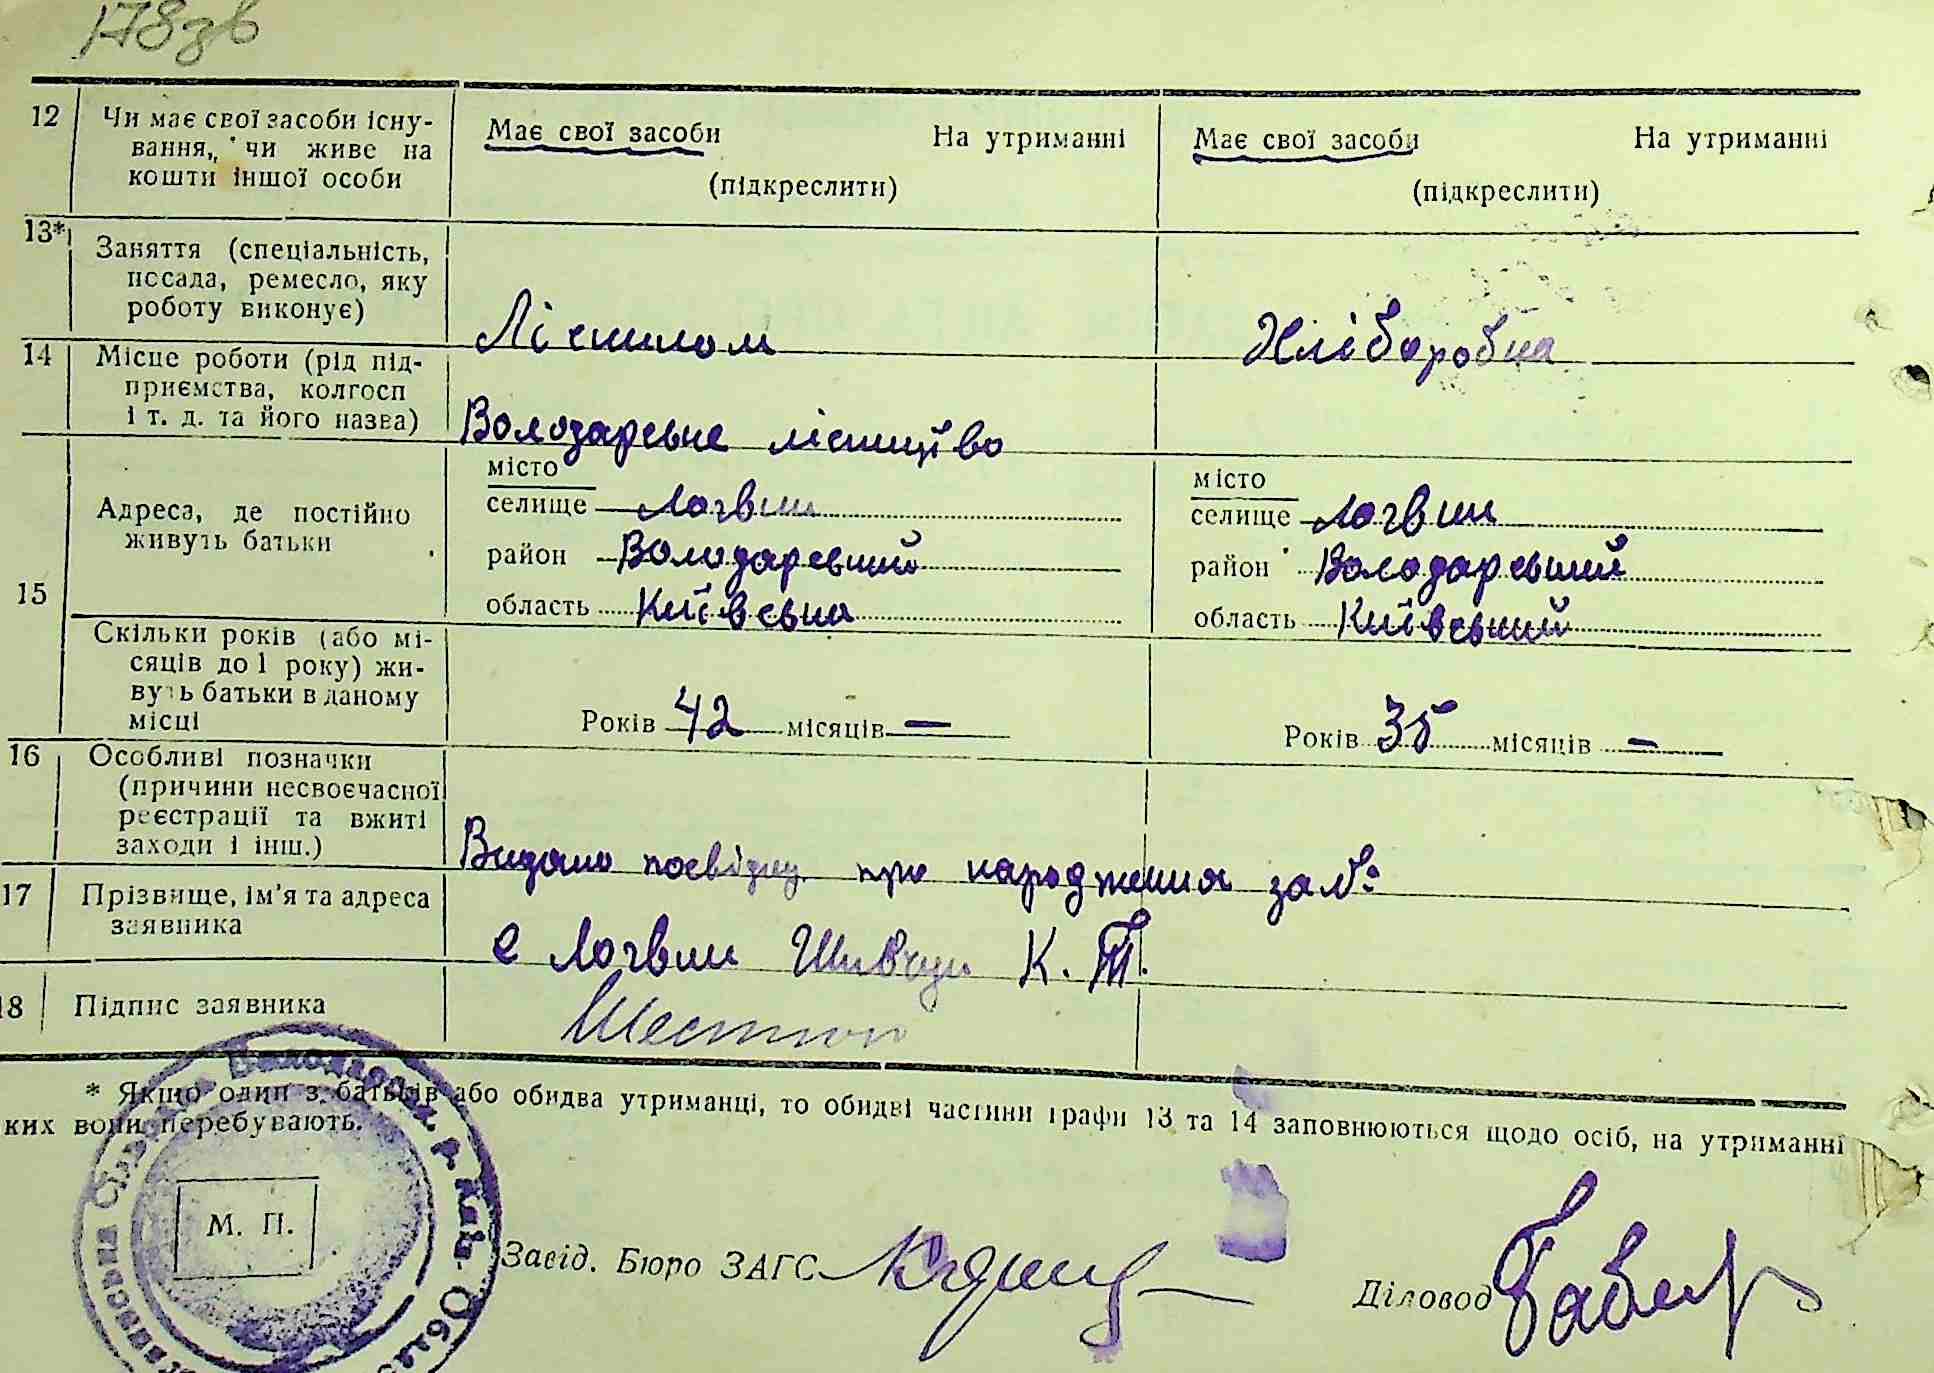 178зв
12 Чи має свої засоби існу-
вання, чи живе на
кошти іншої особи
Має свої засоби На утриманні
(підкреслити)
Має свої засоби На утриманні
(підкреслити)
13* Заняття (спеціальність,
посада, ремесло, яку
роботу виконує)
Хлібаробка
14 Місце роботи (рід під-
приємства, колгосп
і т. д. та його назва)
Володарське лісництво
15 Адреса, де постійно
живуть батьки
місто
селище Логвин
район Володарський
область Київська
місто
селище Логвин
район Володарський
область Київський
Скільки років (або мі-
сяців до 1 року) жи-
вуть батьки в даному
місці
Років 42 місяців —
Років 35 місяців —
16 Особливі позначки
(причини несвоєчасної
реєстрації та вжиті
заходи і інш.)
Видано посвідку про народження за №
17 Прізвище, ім'я та адреса
заявника
с Логвин К. Т.
18 Підпис заявника
* Якщо один з батьків або обидва утриманці, то обидві частини графи 13 та 14 заповнюються щодо осіб, на утриманні
ких вони перебувають.
М. П.
Завід. Бюро ЗАГС
Діловод